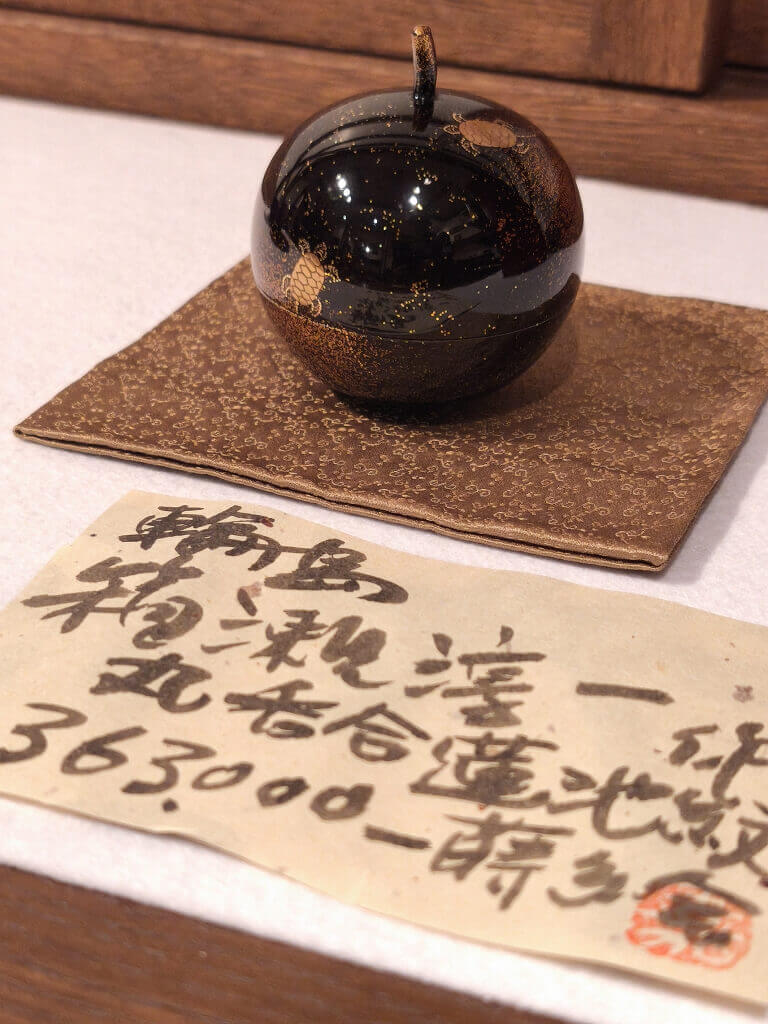 輪島
箱瀬淳一作
丸香合蓮池紋
363.000—蒔